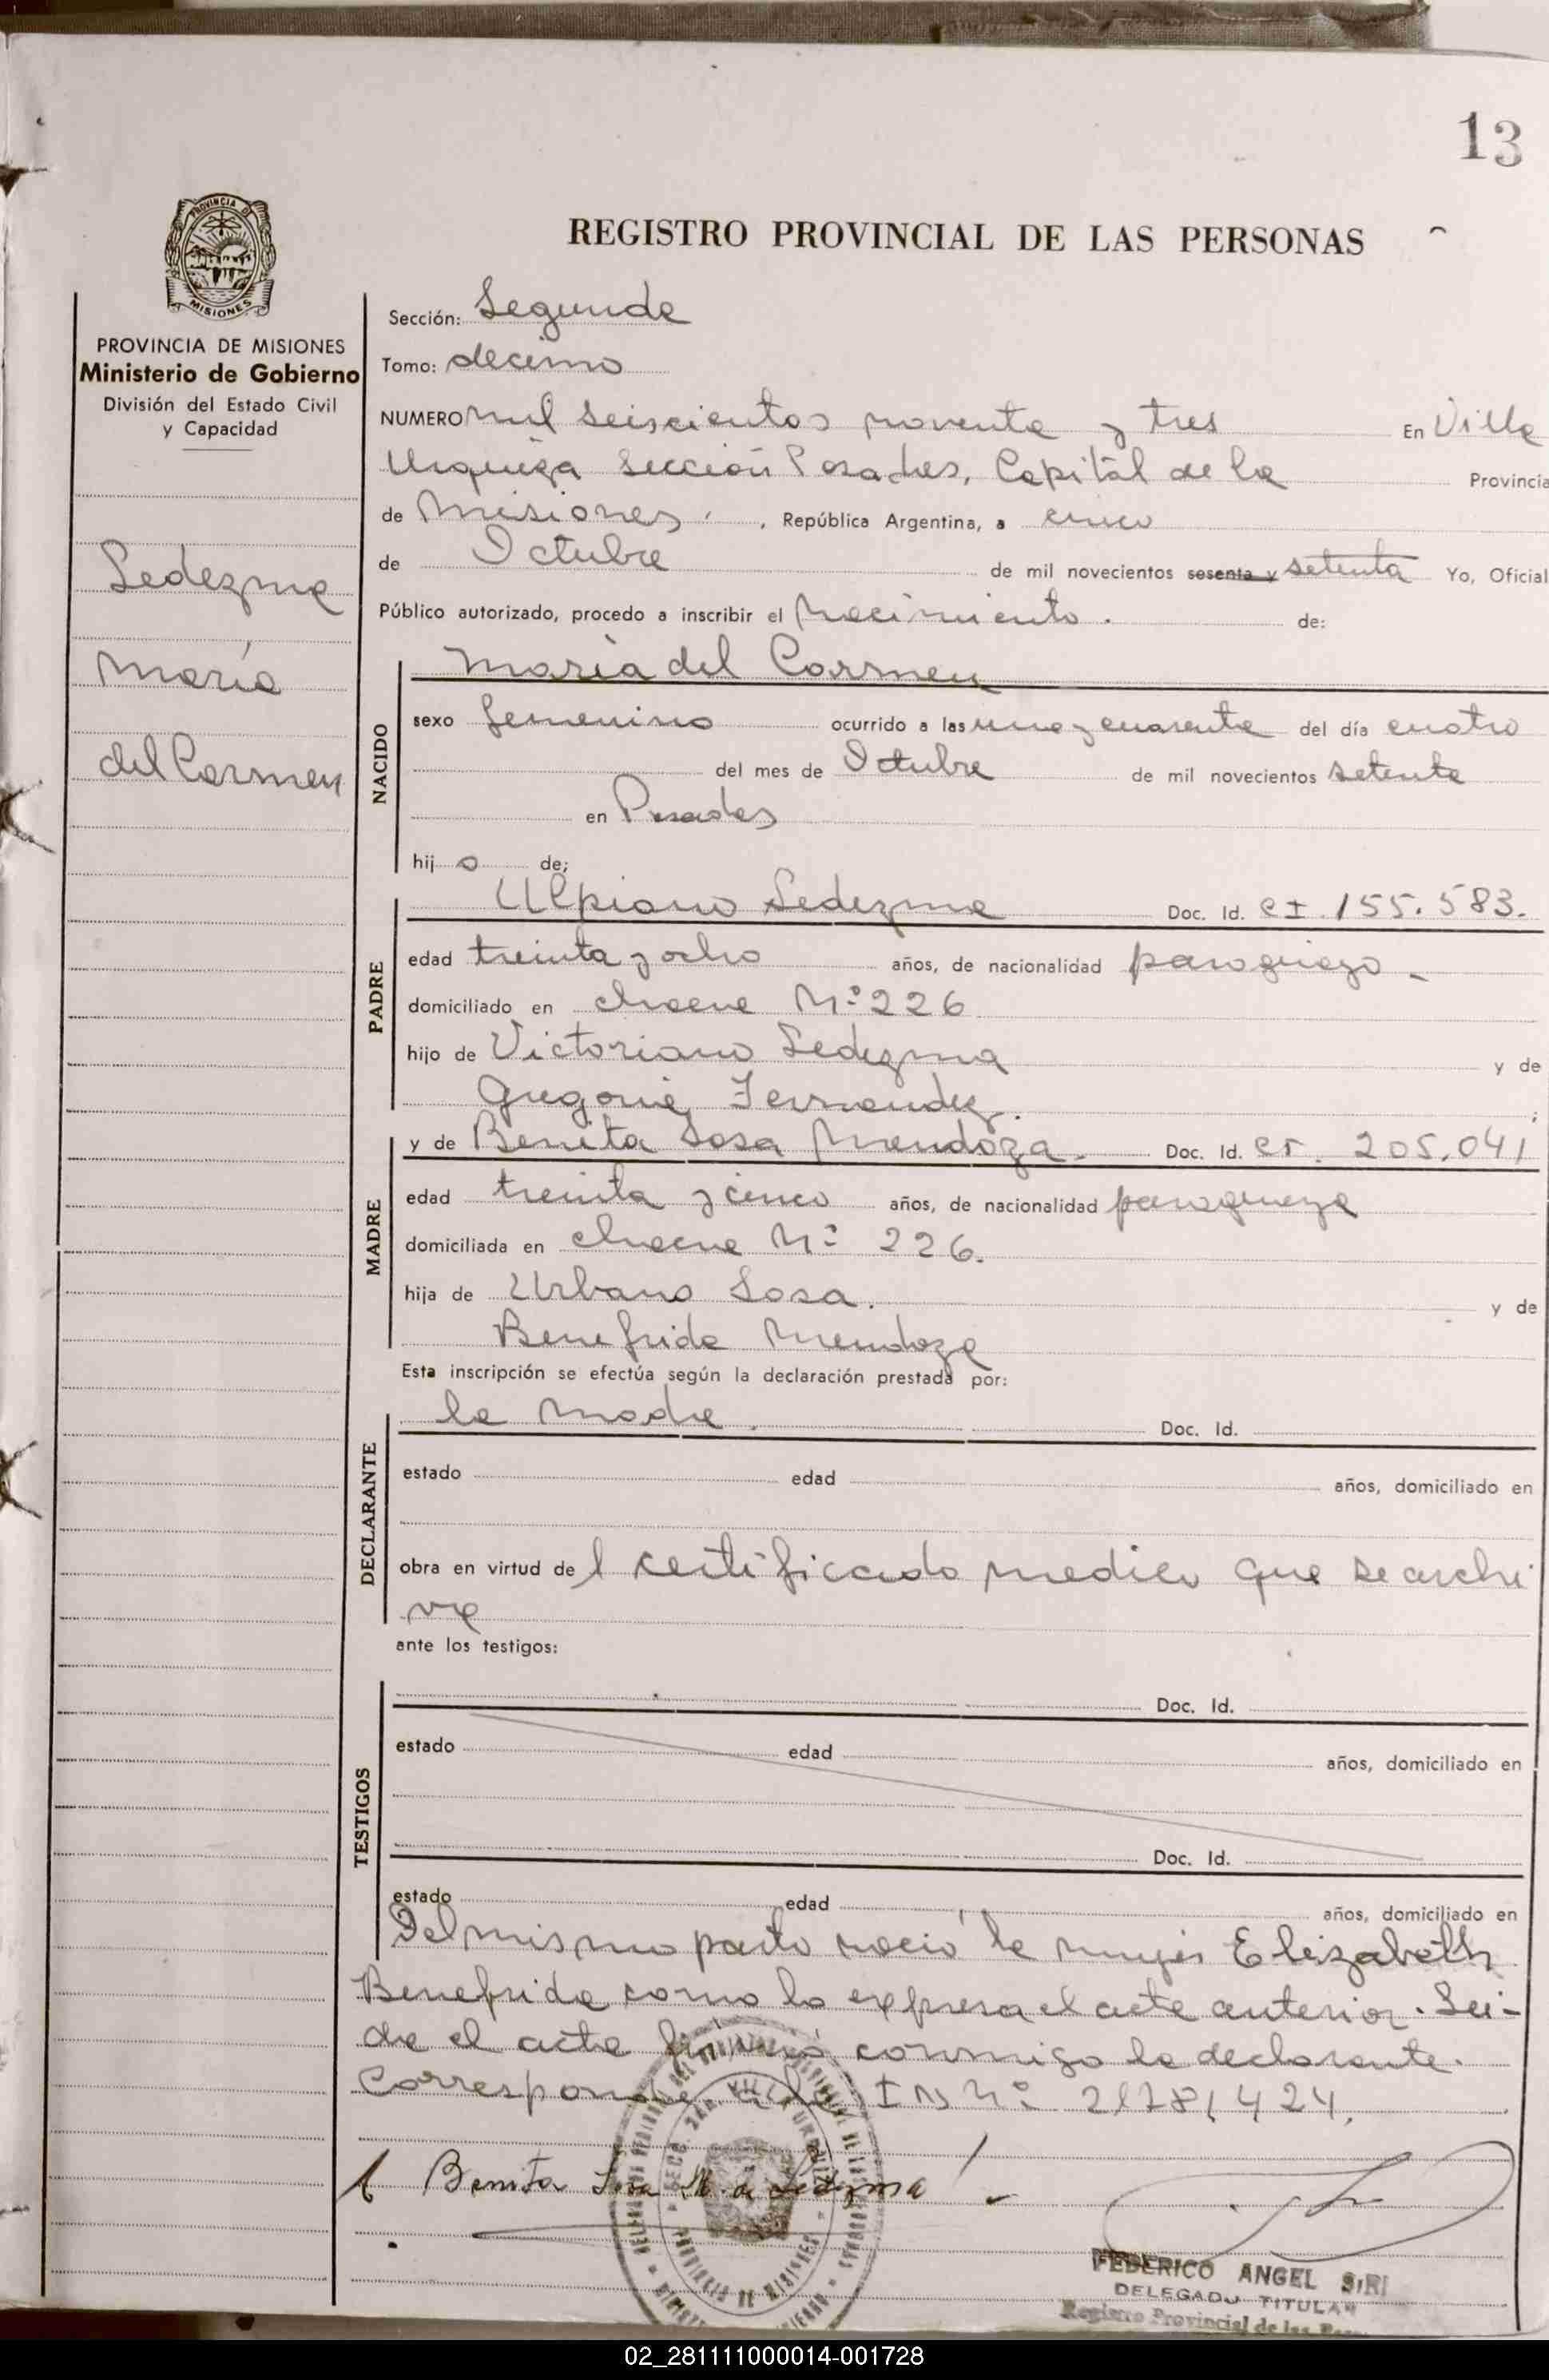 13
PROVINCIA DE
MISIONES
REGISTRO PROVINCIAL DE LAS PERSONAS
PROVINCIA DE MISIONES
Ministerio de Gobierno
División del Estado Civil
y Capacidad
Ledezma
María
del Carmen
Sección: Segunda
Tomo: decimo
NUMERO mil seiscientos noventa y tres En Villa
Urquiza Sección Posadas, Capital de la Provincia
de Misiones, República Argentina, a cinco
de Octubre de mil novecientos sesenta y setenta Yo, Oficial
Público autorizado, procedo a inscribir el Nacimiento. de:
NACIDO
María del Carmen
sexo femenino ocurrido a las una y cuarenta del día cuatro
del mes de Octubre de mil novecientos setenta
en Posadas
hij a de;
PADRE
Ulpiano Ledezma Doc. Id. CI. 155.583.
edad treinta y ocho años, de nacionalidad paraguayo -
domiciliado en chacra Nº 226
hijo de Victoriano Ledezma y de
Gregoria Fernandez. ;
MADRE
y de Benita Sosa Mendoza. Doc. Id. CI. 205.041
edad treinta y cinco años, de nacionalidad paraguaya
domiciliada en chacra Nº 226.
hija de Urbano Sosa. y de
Benefrida Mendoza
Esta inscripción se efectúa según la declaración prestada por:
DECLARANTE
la madre. Doc. Id.
estado edad años, domiciliado en
obra en virtud de l certificado medico que se archi
va
ante los testigos:
TESTIGOS
Doc. Id.
estado edad años, domiciliado en
Doc. Id.
estado edad años, domiciliado en
Del mismo parto nació la mujer Elizabeth
Benefrida como lo expresa el acta anterior. Leí-
da el acta firmó conmigo la declarante.
Corresponde Nº
Benita Sosa M. de Ledezma
FEDERICO ANGEL SIRI
DELEGADO TITULAR
Registro Provincial de las
02_281111000014-001728